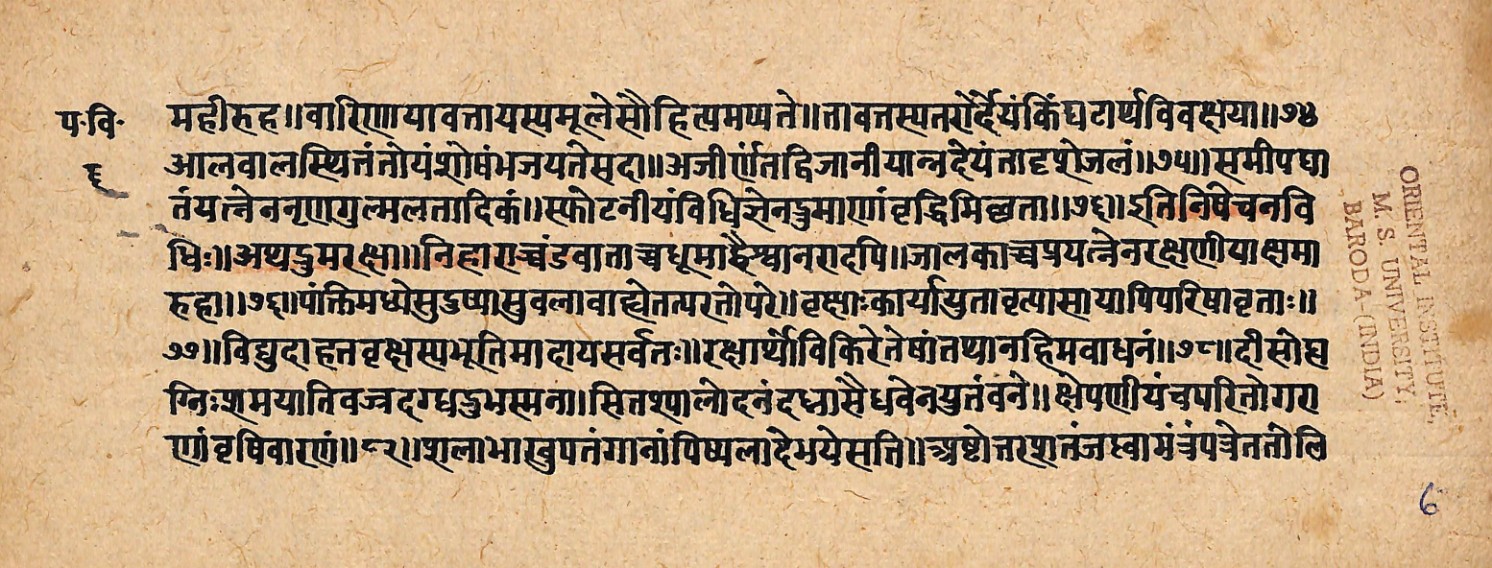 प·वि·
६
महीरुह॥वारिणायावत्तायस्यमूलेसौहित्यमप्यते॥तावत्तस्यतरोर्देयंकिंघटार्थविवक्षया॥७४
आलवालस्थितंतोयंशोषंभजयतेसदा॥अजीर्णंतद्विजानीयान्नदेयंतादृशेजलं॥७५॥समीपघा
र्तयत्नेननृणगुल्मलतादिकं॥स्फोटनीयंविधिज्ञेनद्रुमाणांवृद्धिमिछता॥७६॥इतिनिषेचनवि
धिः॥अथद्रुमरक्षा॥निहाराच्चंडवाताच्चधूमाद्वैश्वानरादपि॥जालकाच्चप्रयत्नेनरक्षणीयाक्षमा
रुहा॥७६॥पंक्तिमध्येसुदुष्पासुवलावाह्वेतत्परतोपरे॥वृक्षाःकार्यायुतावृत्यासायापिपरिषावृताः॥
७७॥विद्युदाहतवृक्षस्यभूतिमादायसर्वतः॥रक्षार्थोविकिरेतेषांतथानहिमवाधनं॥७८॥दीसोद्य
ग्निःशमयातिवज्रदग्धद्रुभस्मना।सितश्यालोदनंदध्नासैधवेनयुतंवने॥क्षेपणीयंचपरितोगरा
णंवृषिवारणं॥८२॥शलाभाखुपतंगानांपिष्पलादेभयेसति॥अष्टोत्तरशतंजप्त्वामंत्रंपत्रेततोलि
ORIENTAL INSTITUTE,
M. S. UNIVERSITY,
BARODA-(INDIA)
6